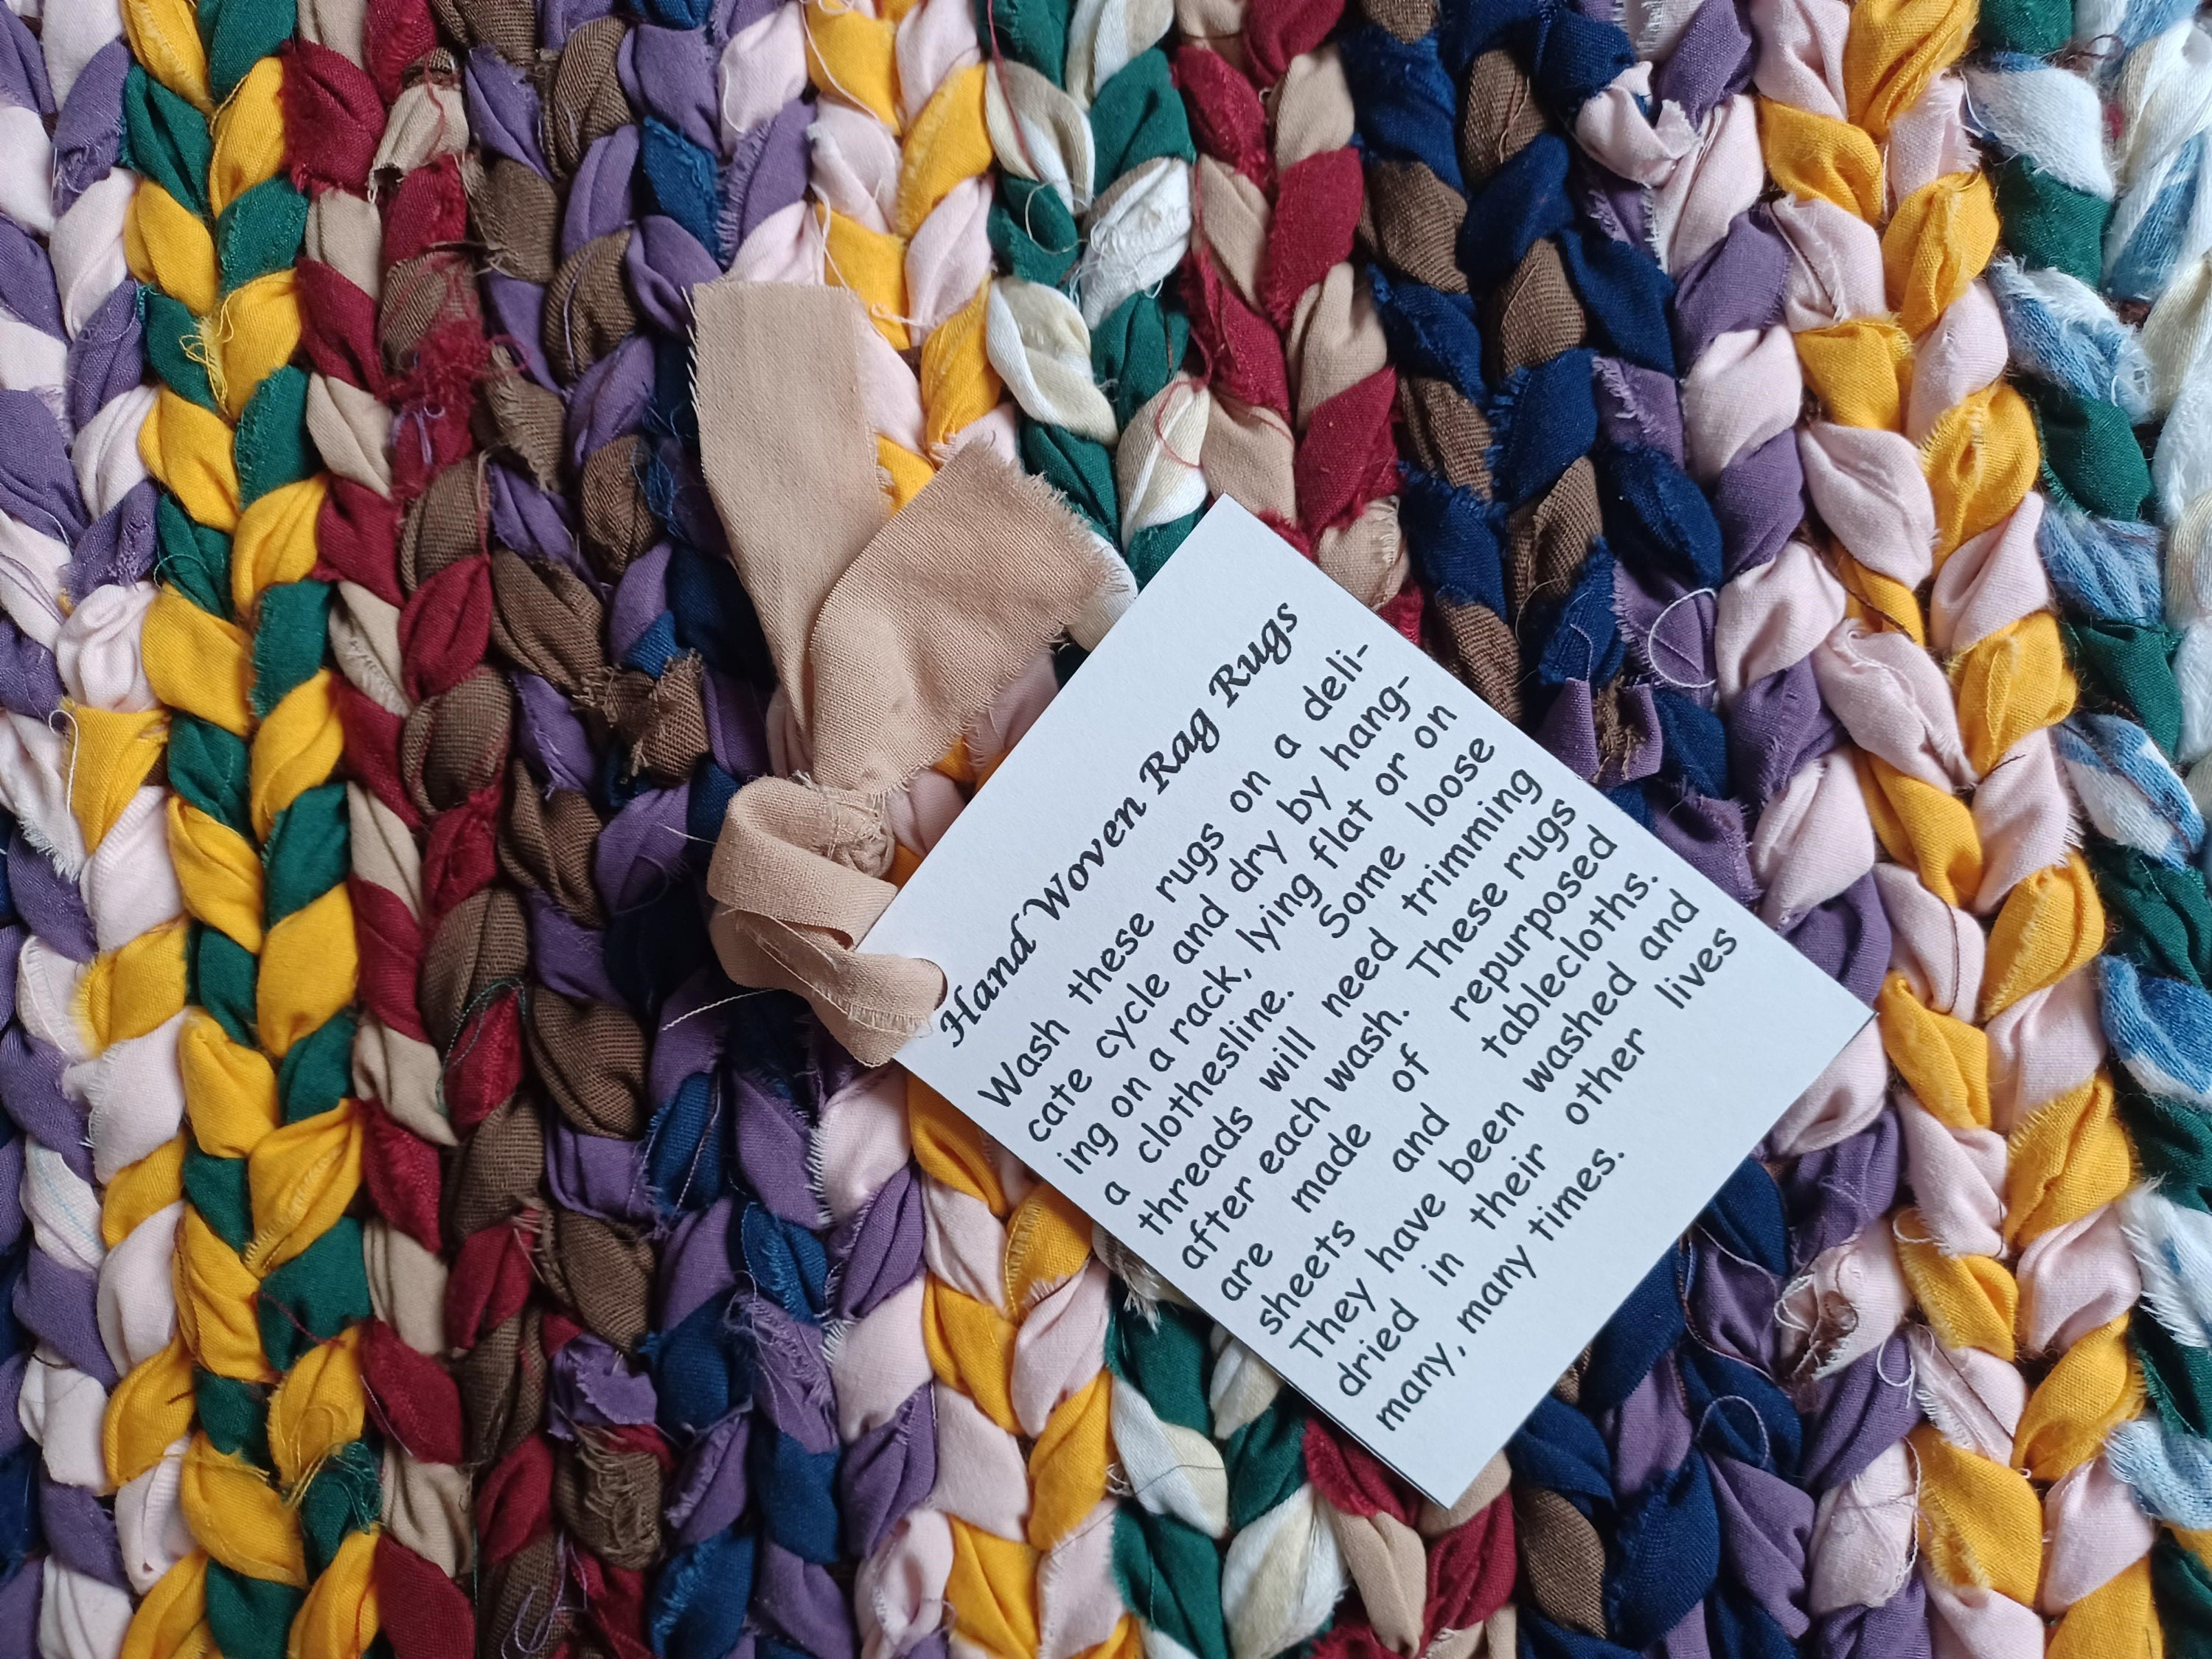 Hand Woven Rag Rugs
Wash these rugs on a deli-
cate cycle and dry by hang-
ing on a rack, lying flat or on
a clothesline. Some loose
threads will need trimming
after each wash. These rugs
are made of repurposed
sheets and tablecloths.
They have been washed and
dried in their other lives
many, many times.